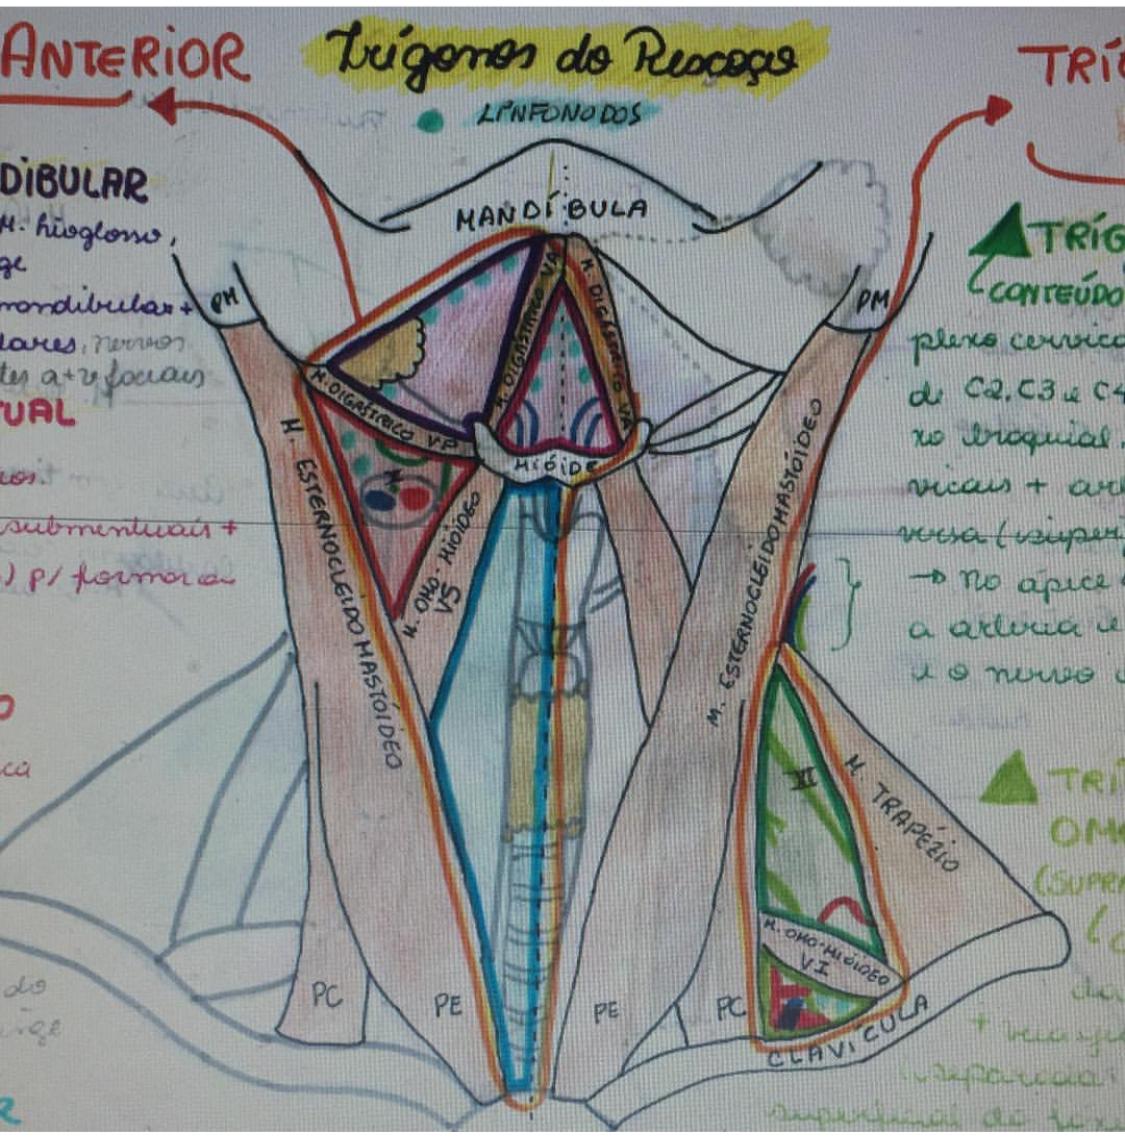 ANTERIOR
Trígonos do Pescoço
TRÍG
LINFONODOS
DIBULAR
M. hioglosso,
ge
mandibular +
lares, nervos
tes a+v faciais
TUAL
submentuais +
) p/ formar a
MANDÍBULA
PM
PM
M. DIGÁSTRICO VA
M. DIGÁSTRICO VA
M. DIGÁSTRICO VP
HIÓIDE
M. ESTERNOCLEIDOMASTÓIDEO
M. OMO-HIÓIDEO
VS
M. ESTERNOCLEIDOMASTÓIDEO
XI
M. TRAPÉZIO
M. OMO-HIÓIDEO
VI
PC
PE
PE
PC
CLAVÍCULA
TRÍG
CONTEÚDO
plexo cervica
de C2, C3 e C4
xo braquial.
vicais + ar
versa (super
→ No ápice
a artéria e
e o nervo
TRÍ
OMO
(SUPRA
da
do
superficial do